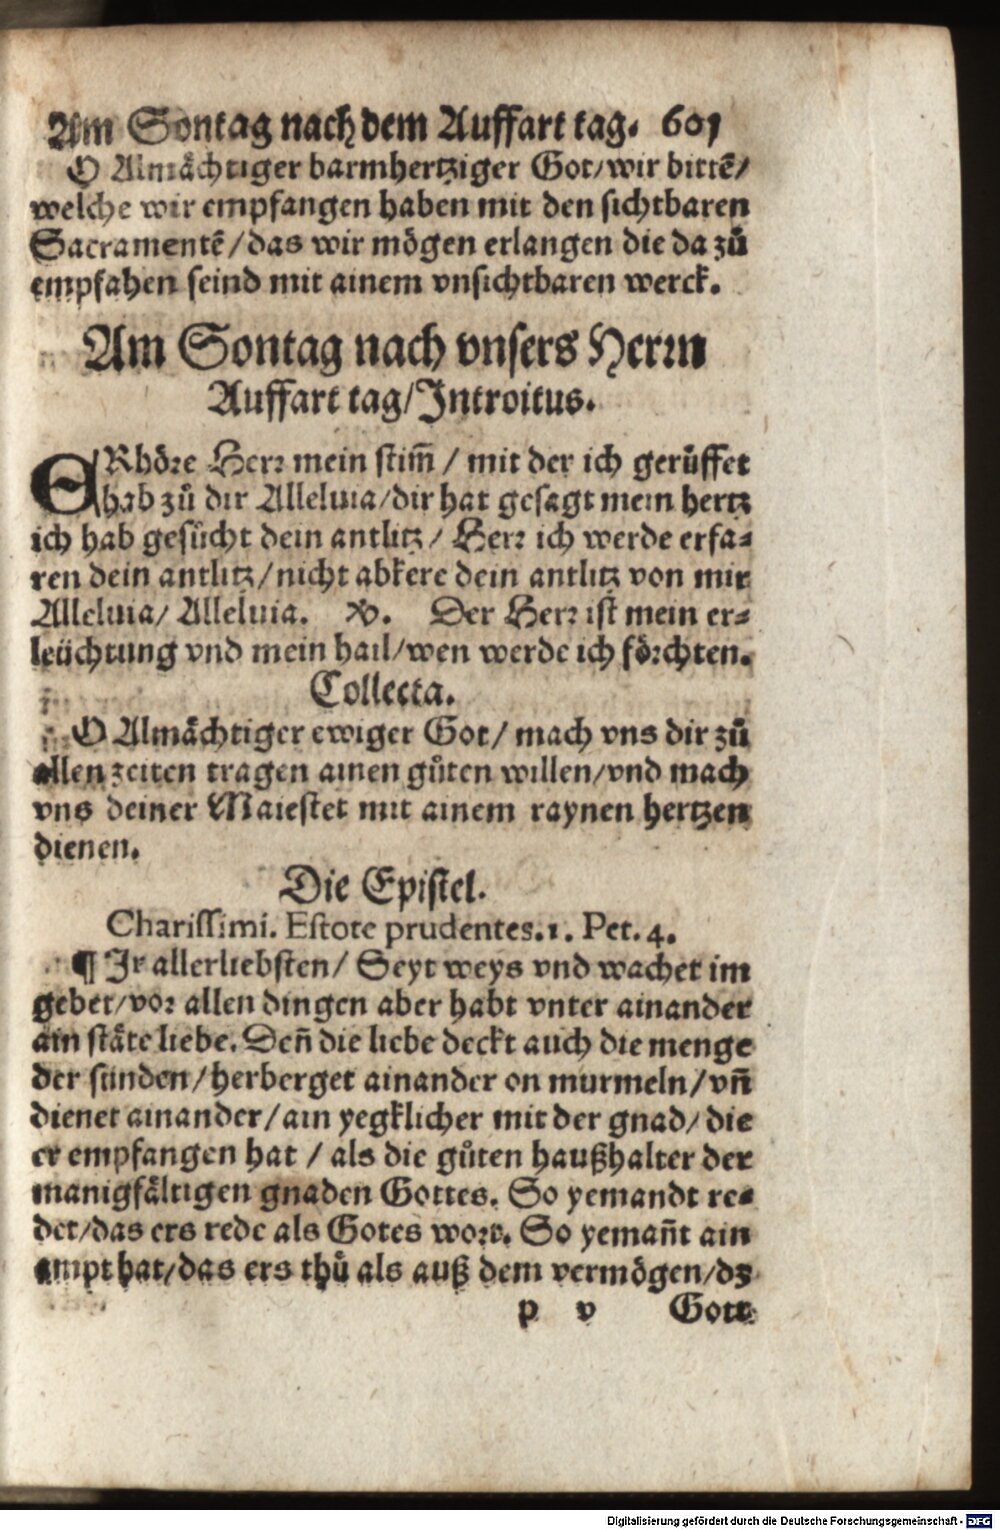 Am Sontag nach dem Auffart tag. 601
O Almächtiger barmhertziger Got/wir bittẽ/
welche wir empfangen haben mit den sichtbaren
Sacramentẽ/das wir mögen erlangen die da zů
empfahen seind mit ainem vnsichtbaren werck.
Am Sontag nach vnsers Herrn
Auffart tag/Introitus.
ERhöre Herr mein stim̃ / mit der ich gerüffet
hab zů dir Alleluia/dir hat gesagt mein hertz
ich hab gesücht dein antlitz/ Herr ich werde erfa⸗
ren dein antlitz/nicht abkere dein antlitz von mir
Alleluia/ Alleluia. ℣. Der Herr ist mein er⸗
leüchtung vnd mein hail/wen werde ich förchten.
Collecta.
O Almächtiger ewiger Got/ mach vns dir zů
allen zeiten tragen ainen gůten willen/vnd mach
vns deiner Maiestet mit ainem raynen hertzen
dienen.
Die Epistel.
Charissimi. Estote prudentes.1. Pet. 4.
¶ Ir allerliebsten/ Seyt weys vnd wachet im
gebet/vor allen dingen aber habt vnter ainander
ain stäte liebe. Den̄ die liebe deckt auch die menge
der sünden/herberget ainander on murmeln/vn̄
dienet ainander/ain yegklicher mit der gnad/die
er empfangen hat / als die gůten haußhalter der
manigfältigen gnaden Gottes. So yemandt re⸗
det/das ers rede als Gotes wort. So yeman̄t ain
ampt hat/das ers thů als auß dem vermögen/dz
p v Gott
Digitalisierung gefördert durch die Deutsche Forschungsgemeinschaft - DFG